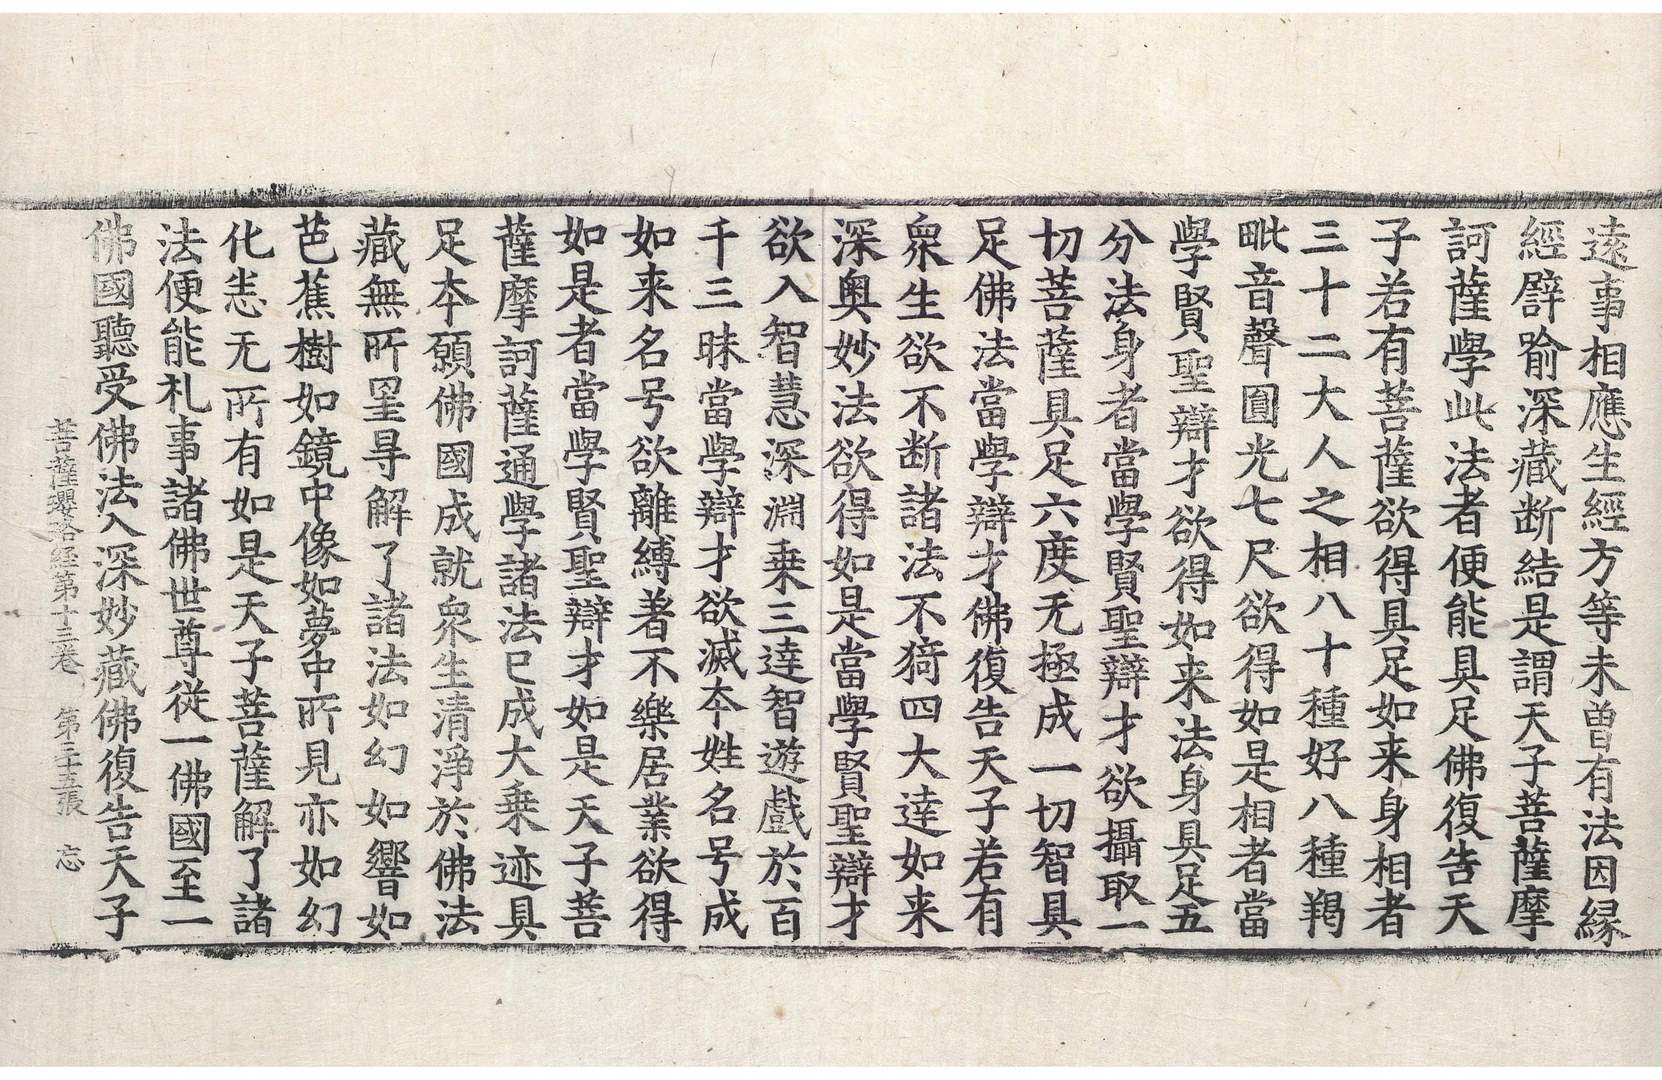 遠事相應生經方等未曾有法因緣
經譬喻深藏断結是謂天子菩薩摩
訶薩學此法者便能具足佛復告天
子若有菩薩欲得具足如来身相者
三十二大人之相八十種好八種羯
毗音聲圓光七尺欲得如是相者當
學賢聖辯才欲得如来法身具足五
分法身者當學賢聖辯才欲攝取一
切菩薩具足六度无極成一切智具
足佛法當學辯才佛復告天子若有
衆生欲不断諸法不猗四大達如来
深奥妙法欲得如是當學賢聖辯才
欲入智慧深淵乗三達智遊戲於百
千三昧當學辯才欲滅本姓名号成
如来名号欲離縛著不樂居業欲得
如是者當學賢聖辯才如是天子菩
薩摩訶薩通學諸法已成大乗迹具
足本願佛國成就衆生清淨於佛法
藏無所罣㝵解了諸法如幻如響如
芭蕉樹如鏡中像如夢中所見亦如幻
化恚无所有如是天子菩薩解了諸
法便能礼事諸佛世尊從一佛國至一
佛國聽受佛法入深妙藏佛復告天子
菩薩瓔珞経第十三卷 第二十五張 忘